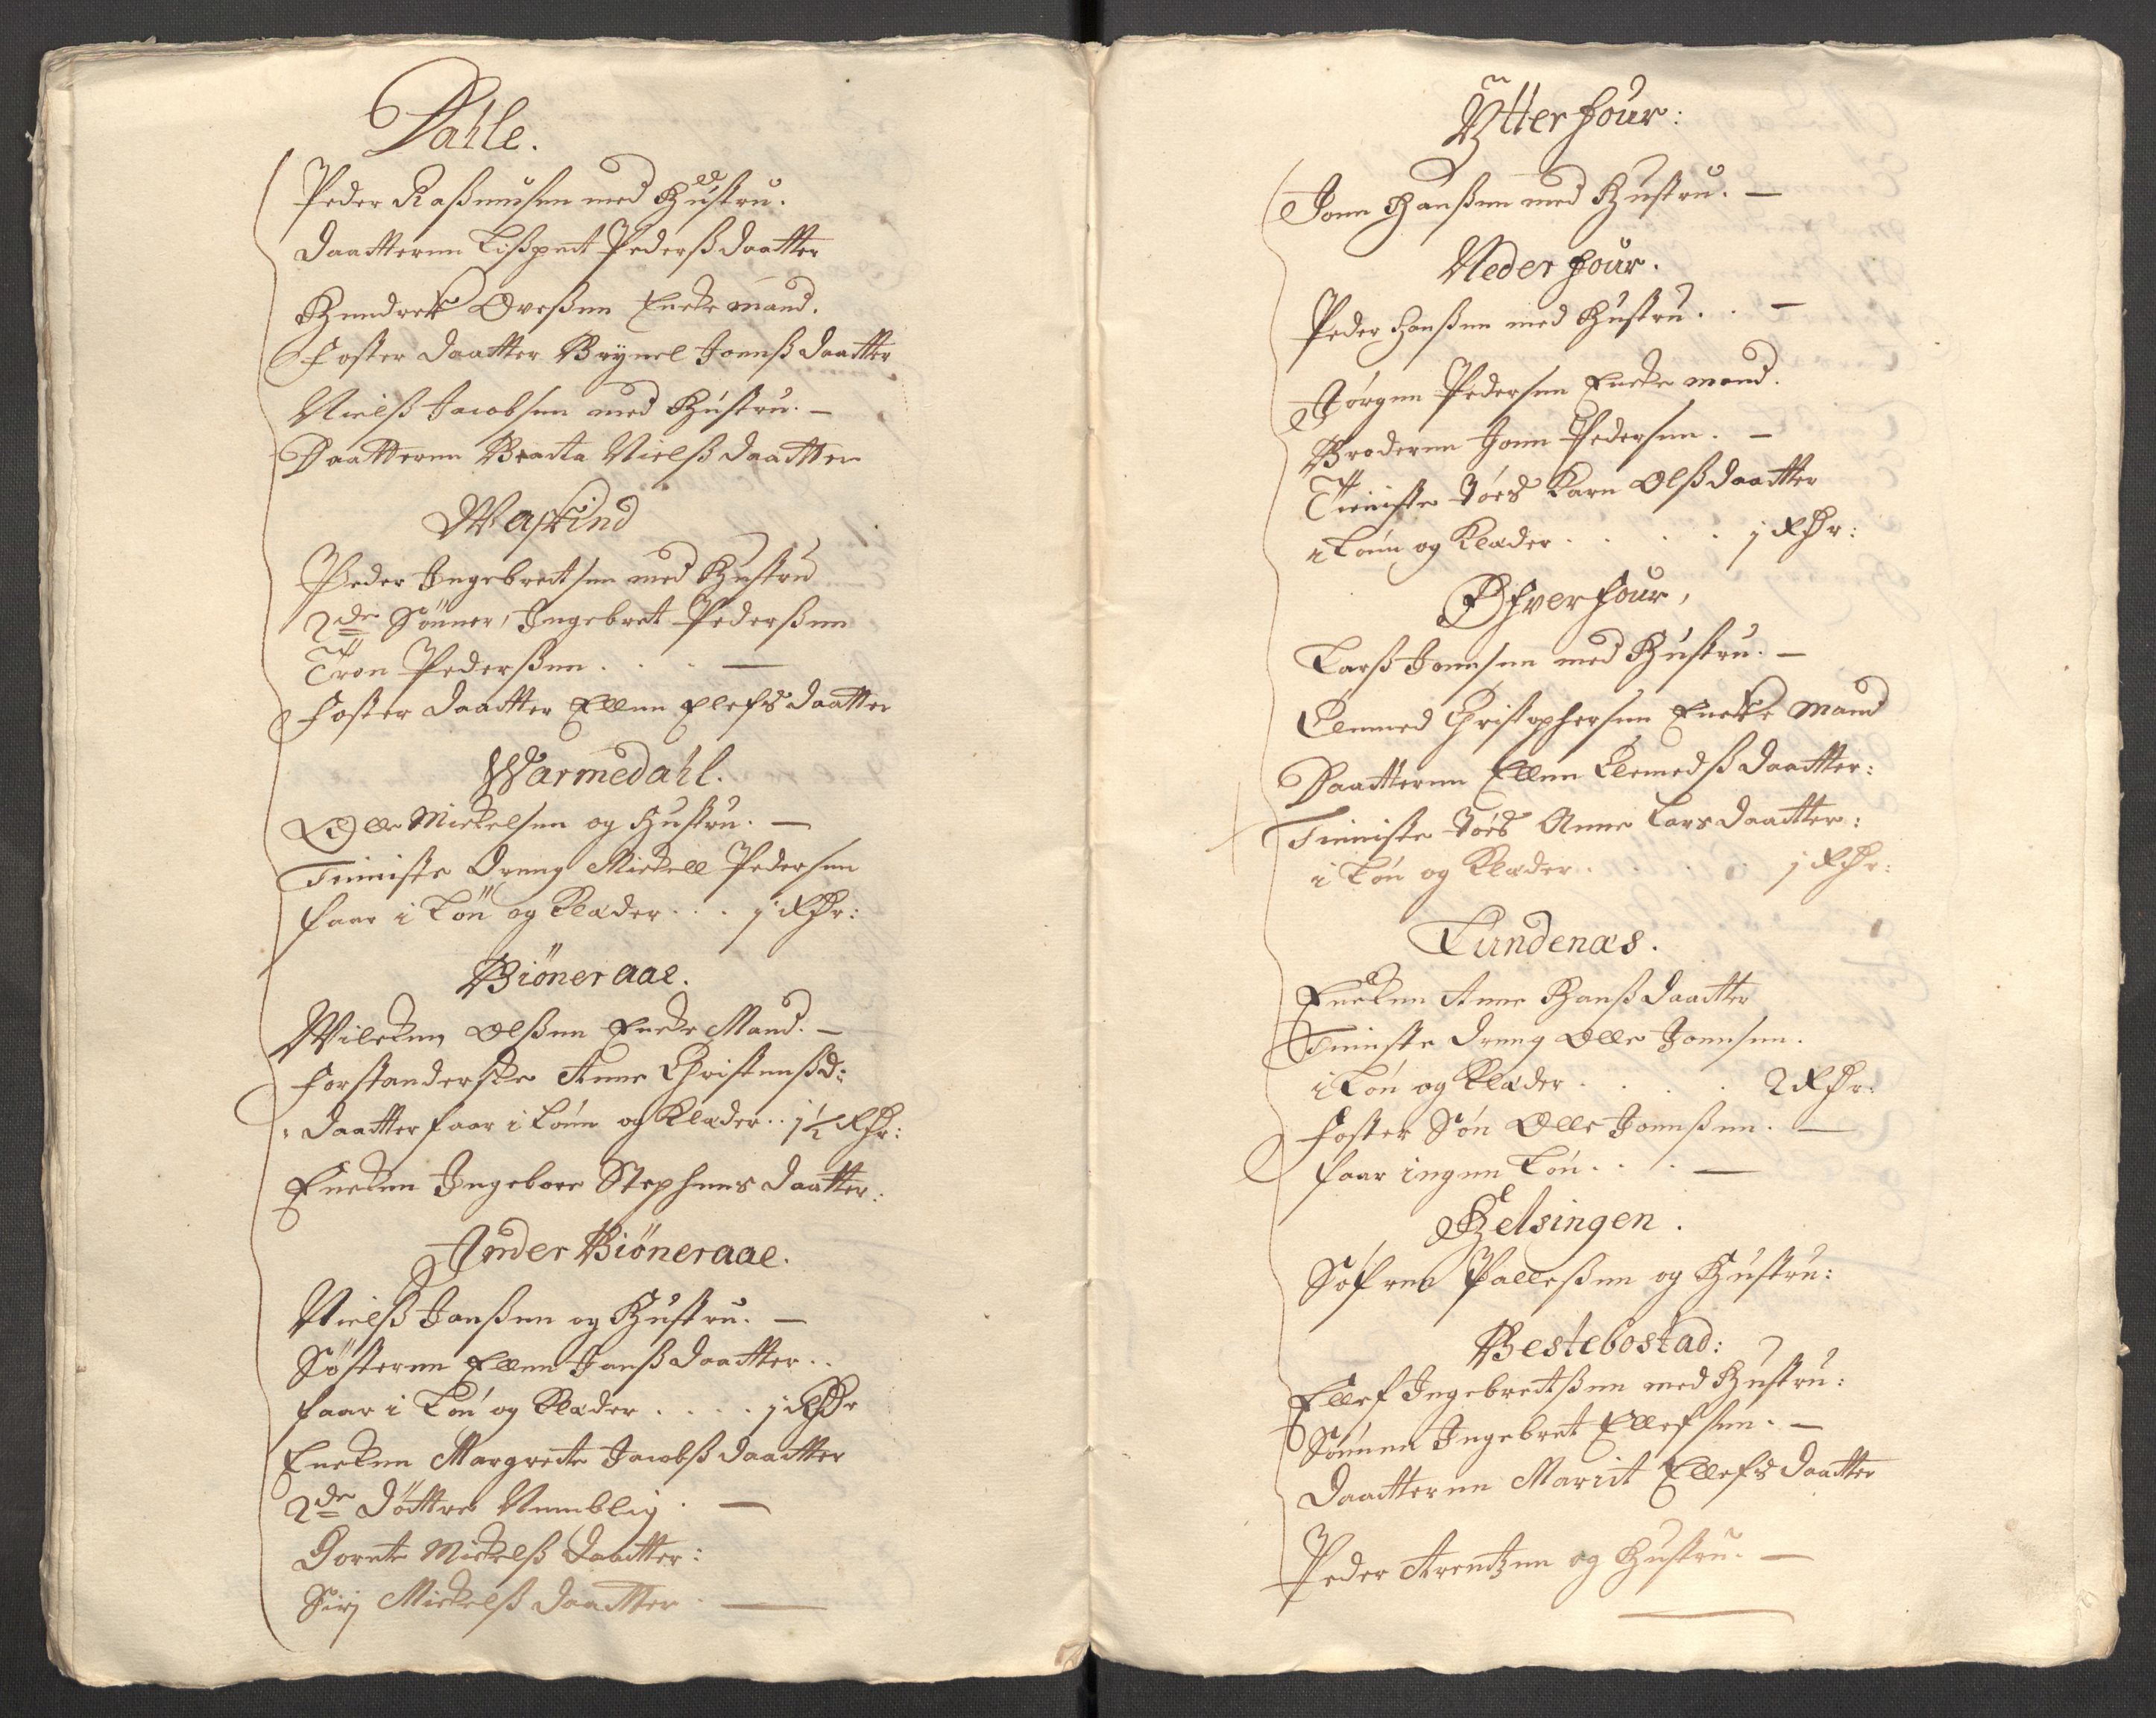 Dahle.
Peder Raßmusen med Hustru.
Daatteren Lißpeet Pederß daatter
Hendrek Oveßen Encke mand.
Foster daatter Brynel Jonnß daatter
Nielß Jacobsen med Hustru. —
Daatteren Beata Nielß daatter
Waskind
Peder Ingebreitsen med Hustru
2de Sönner, Ingebret Pederßen
Tron Pederßen . . . —
Foster daatter Ellen Elefs daatter
Warmedahl.
Olle Mickelsen og Hustru. —
Tienniste Dreng Mickell Pedersen
faar i Lön og Klæder . . . 1 Rdr:
Biöneraae.
Wilcken Olßen Encke Mand. —
Forstanderske Anne Christenß d:
daatter faar i Lönn og Klæder . . 1½ Rdr:
Encken Ingebore Stephens daatter:
Inder Biöneraae.
Nielß Janßen og Hustru. —
Sösteren Ellen Janß daatter . .
faar i Lön og Klæder . . . . 1 Rdr
Encken Margrete Jacobß daatter
2de Döttre Nemblig . —
Dorete Mickelß daatter:
Siri Mickelß daatter . —
Ytter four:
Jonn Hanßen med Hustru. —
Neder four.
Peder Hanßen med Hustru . . —
Jörgen Pedersen Encke mand.
Broderen Jonn Pedersen . —
Tieniste Töes Karn Olß daatter
i Lönn og Klæder . . . . 1 Rdr:
Öfver four,
Larß Jonnsen med Hustru. —
Clemmed Christophersen Encke Mand
Daatteren Ellen Clemedß daatter:
Tienniste Töes Anne Lars daatter:
i Lön og Klæder . . . . 1 Rdr:
Lundenæs.
Encken Anne Hanß daatter
Tienniste Dreng Olle Jonnsen.
i Lön og Klæder . . . . 2 Rdr:
Foster Sön Olle Jonnßen. —
faar ingen Lön . . . —
Helsingen.
Söfren Palleßen og Hustru:
Bestebostad:
Ellef Ingebreitßen med Hustru:
Sönnen Ingebret Ellefsen. —
Daatteren Marit Ellefs daatter
Peder Arentzen og Hustru. —